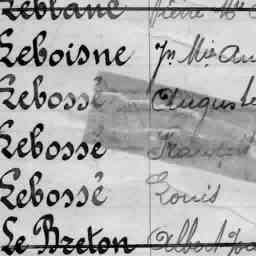 Leblanc Pierre Me
Leboisne Jn Mie Au
Lebossé Auguste
Lebossé François
Lebossé Louis
Le Breton Albert Jo